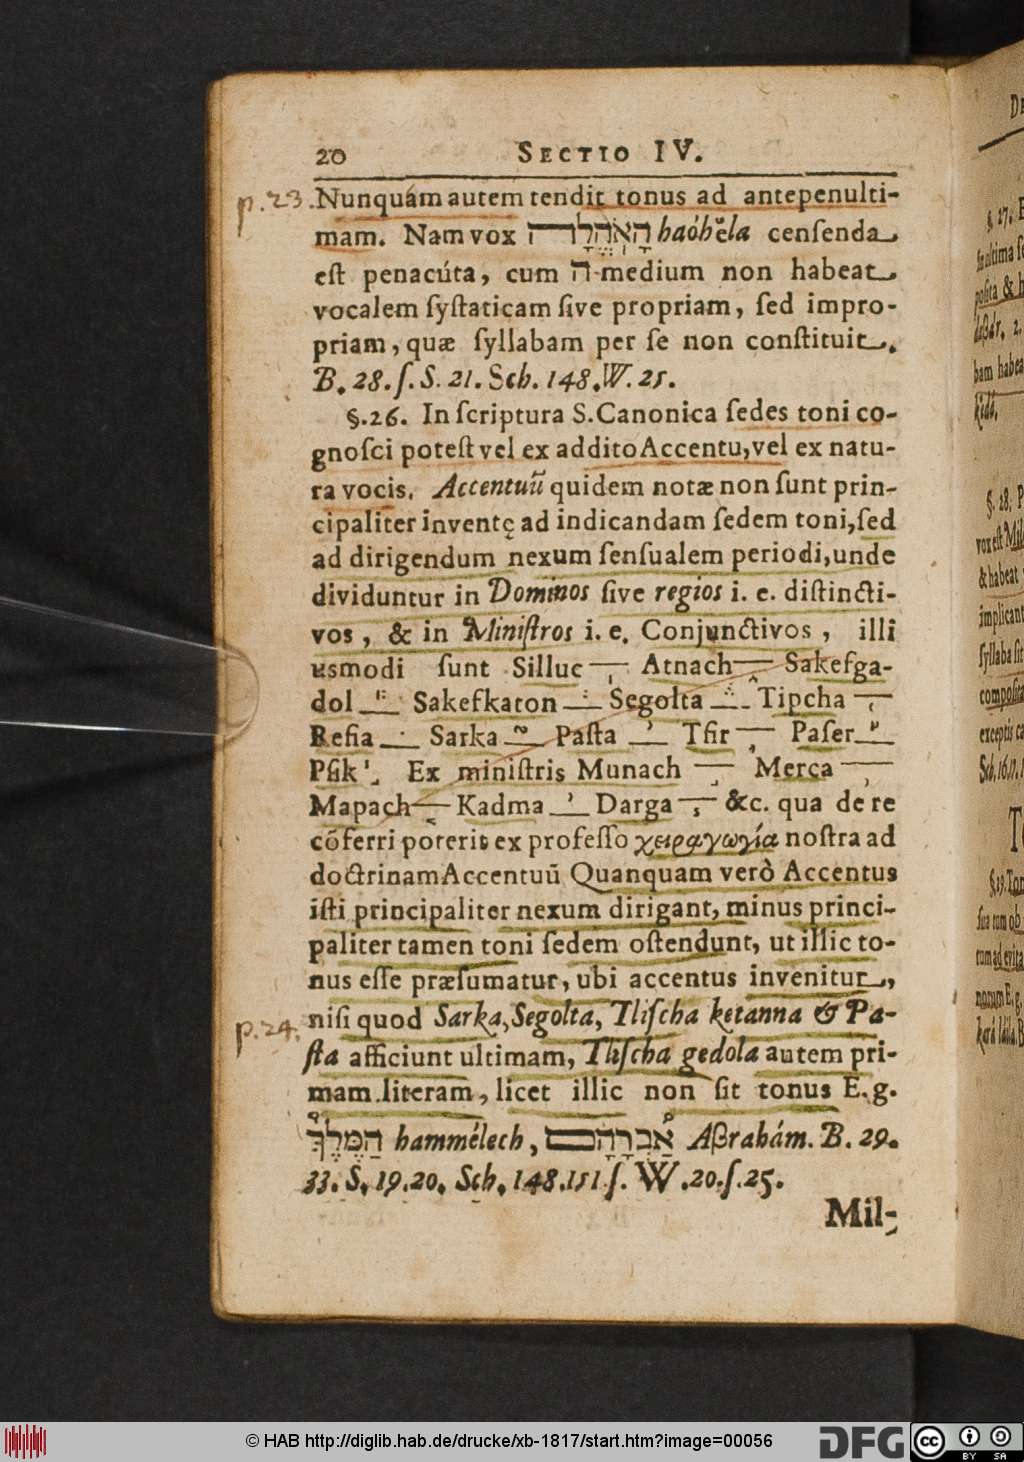 20 SECTIO IV.
p.23. Nunquam autem tendit tonus ad antepenulti-
mam. Nam vox הָאֹהֱלָה haohĕla censenda
est penacúta, cum ה medium non habeat
vocalem systaticam sive propriam, sed impro-
priam, quæ syllabam per se non constituit.
B. 28. s. S. 21. Sch. 148. W. 25.
§. 26. In scriptura S. Canonica sedes toni co-
gnosci potest vel ex addito Accentu, vel ex natu-
ra vocis. Accentuū quidem notæ non sunt prin-
cipaliter inventę ad indicandam sedem toni, sed
ad dirigendum nexum sensualem periodi, unde
dividuntur in Dominos sive regios i. e. distincti-
vos, & in Ministros i. e. Conjunctivos, illi
usmodi sunt Silluc Atnach Sakefga-
dol Sakefkaton Segolta Tipcha
Refia Sarka Pasta Tfir Paser
Psik Ex ministris Munach Merca
Mapach Kadma Darga &c. qua de re
cōferri poteris ex professo χειραγωγία nostra ad
doctrinam Accentuū Quanquam verò Accentus
isti principaliter nexum dirigant, minus princi-
paliter tamen toni sedem ostendunt, ut illic to-
nus esse præsumatur, ubi accentus invenitur,
p.24. nisi quod Sarka, Segolta, Tlischa ketanna & Pa-
sta afficiunt ultimam, Tlischa gedola autem pri-
mam literam, licet illic non sit tonus E. g.
הַמֶּלֶךְ hammélech, אַבְרָהָם Aβrahám. B. 29.
33. S. 19. 20. Sch. 148. 151 s. W. 20. s. 25.
Mil-
© HAB http://diglib.hab.de/drucke/xb-1817/start.htm?image=00056
DFG
cc BY SA